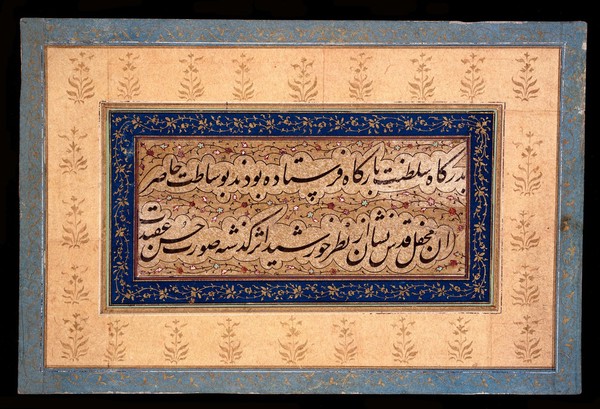 بدرگاه سلطنت بارگاه فرستاده بودند بوساطت حاضر
ان محفل قدس نشان از نظر خورشید اثر گذشه صورت حسن عقیدت